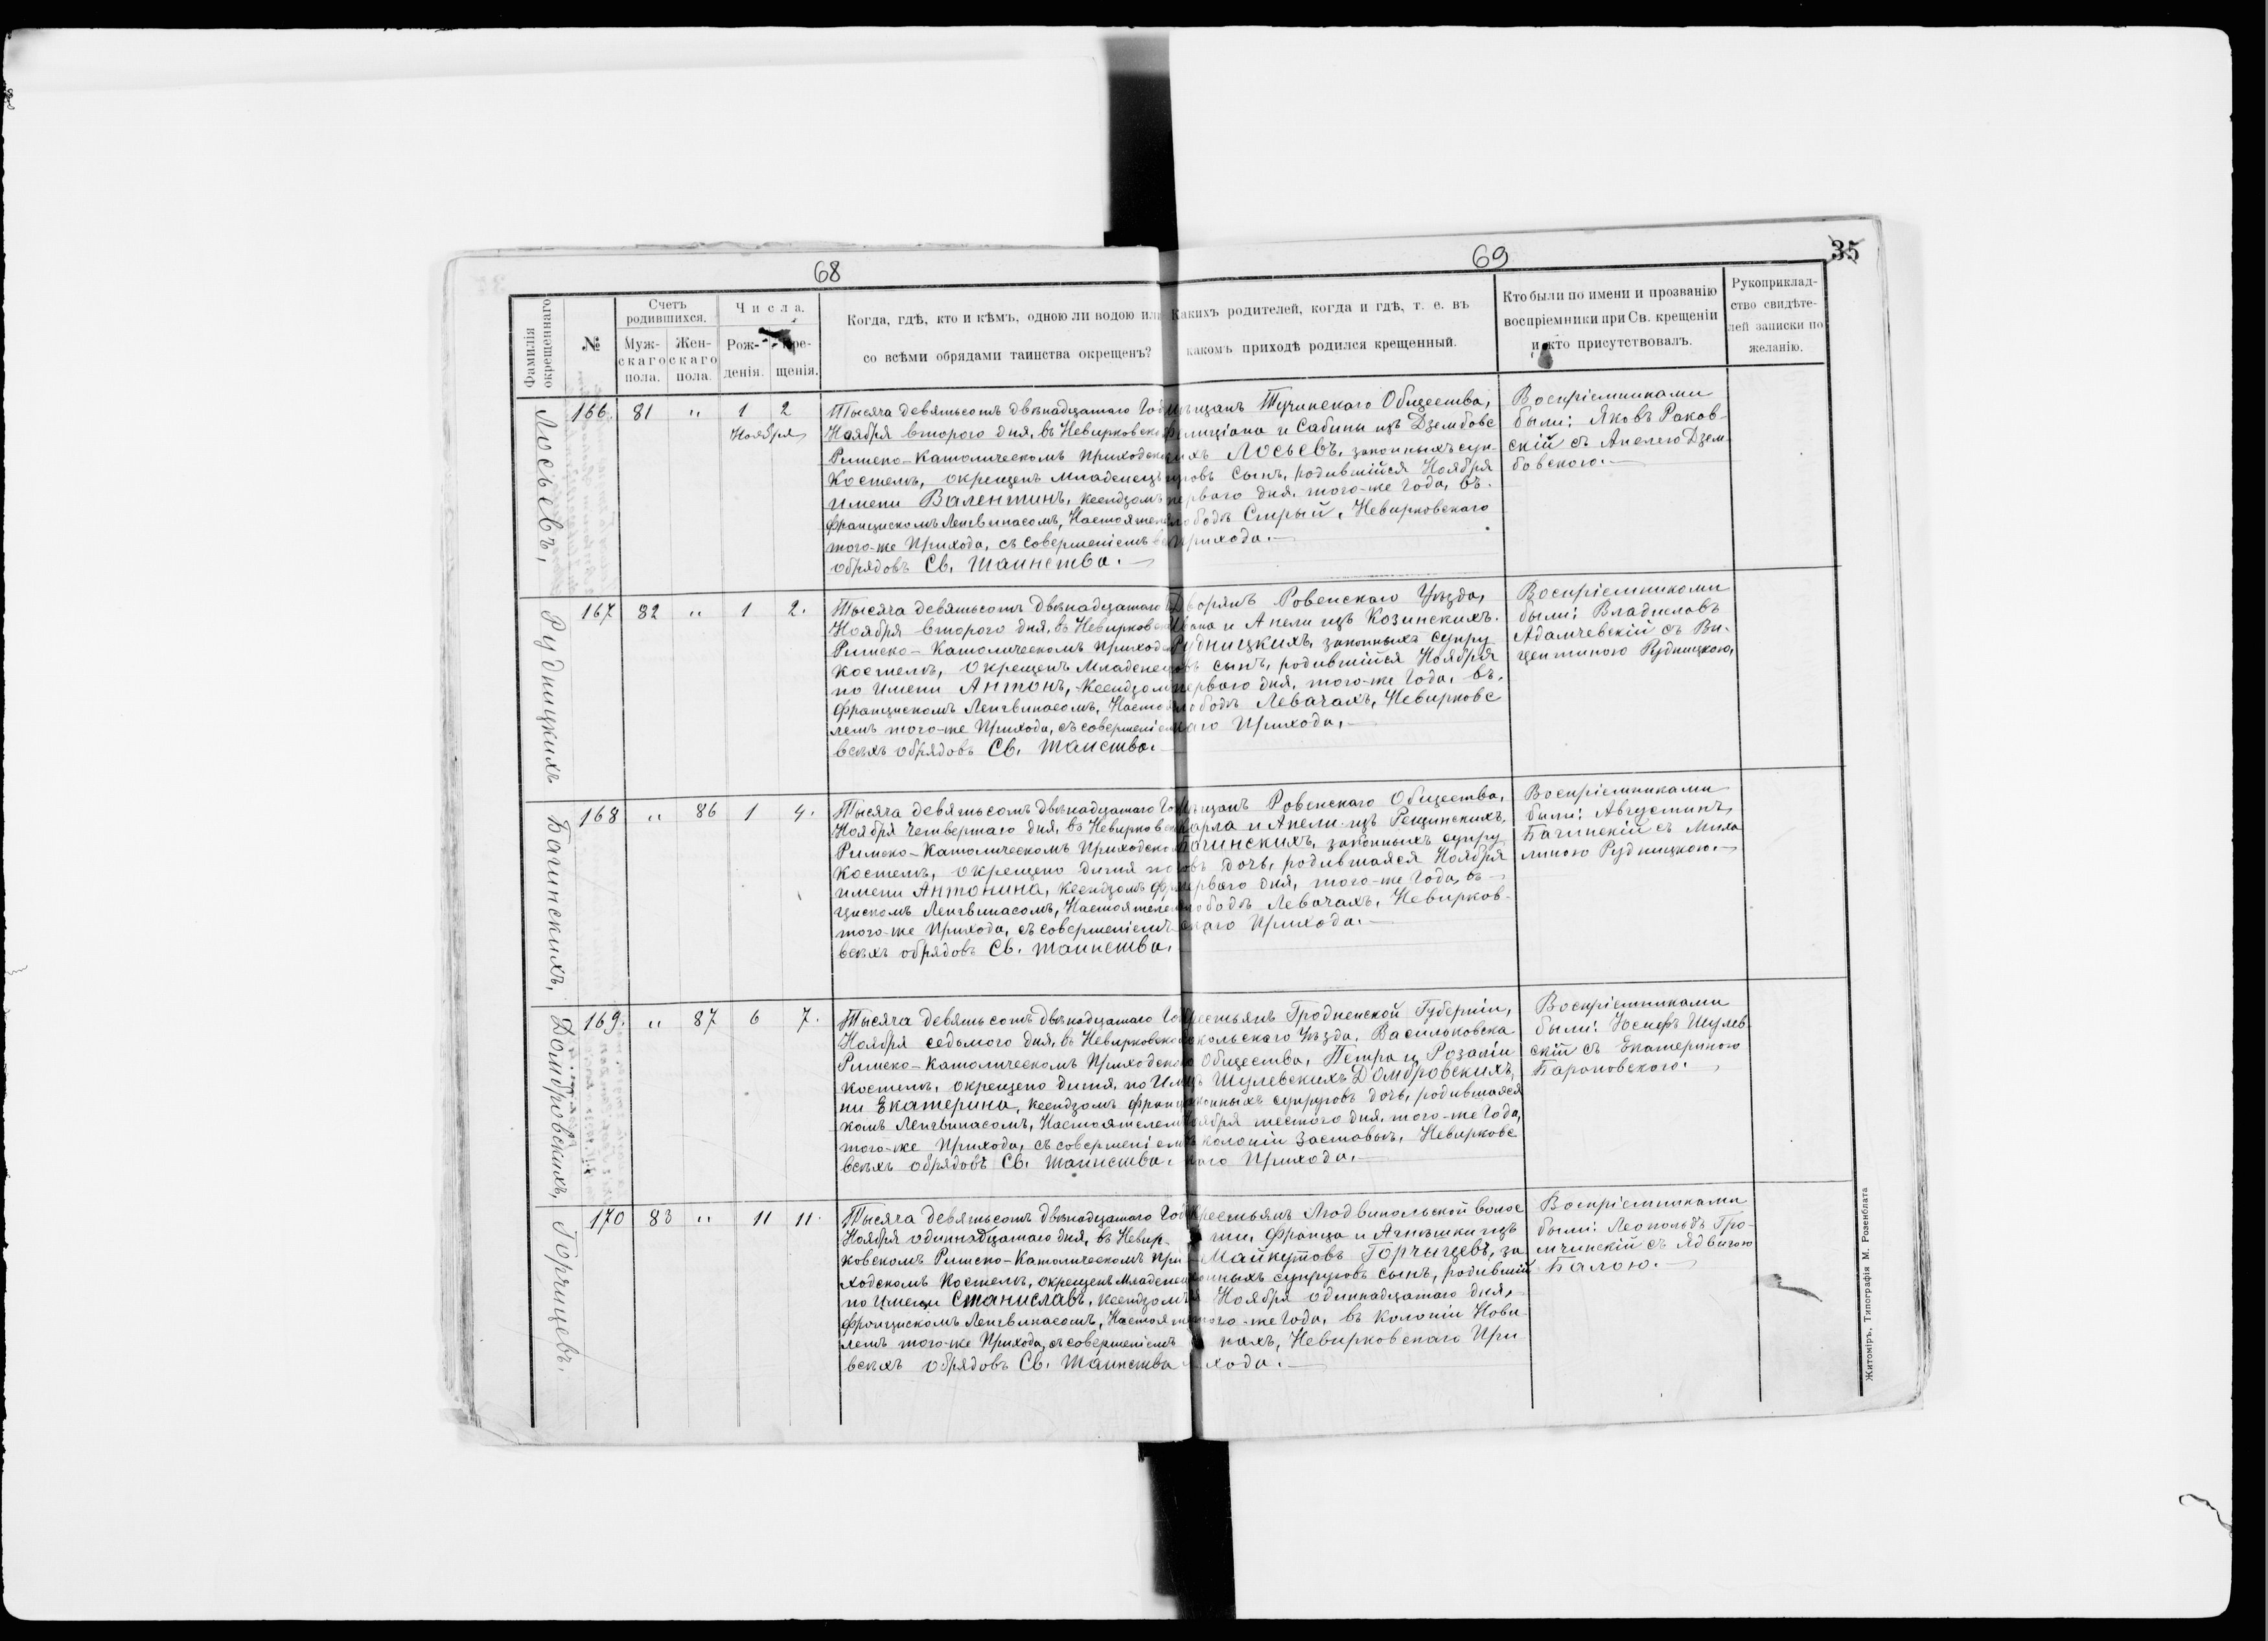 68
69
35
Фамилія окрещеннаго
№
Счетъ родившихся.
Мужскаго пола.
Женскаго пола.
Числа.
Рожденія.
Крещенія.
Когда, гдѣ, кто и кѣмъ, одною ли водою или
со всѣми обрядами таинства окрещенъ?
Какихъ родителей, когда и гдѣ, т. е. въ
какомъ приходѣ родился крещенный.
Кто были по имени и прозванію
воспріемники при Св. крещеніи
и кто присутствовалъ.
Рукоприклад-
ство свидѣте-
лей записки по
желанію.
Лосьевъ,
166. 81 " 1 2
Ноября
Тысяча девятьсотъ двѣнадцатаго Год
Ноября второго дня, въ Невирковско
Римско-Католическомъ Приходско
Костелѣ, окрещенъ младенецъ
имени Валентинъ, Ксендзомъ
Францискомъ Ленгвинасомъ, Настояте
того-же Прихода, съ совершеніемъ
обрядовъ Св. Таинства.
мѣщанъ Тучинскаго Общества,
Фелиціана и Сабины изъ Дзембовс
ихъ Лосьевъ, законныхъ суп-
руговъ сынъ, родившійся Ноября
перваго дня, того-же Года, въ
слободѣ Смрый, Невирковскаго
Прихода.
Воспріемниками
были: Яковъ Раков-
скій съ Анелею Дзем-
бовскою.
Рудницкихъ
167 82 " 1 2.
Тысяча девятьсотъ двѣнадцатаго
Ноября второго дня, въ Невирковс
Римско-Католическомъ Приход
Костелѣ, окрещенъ младенец
по имени Антонъ, Ксендзом
Францискомъ Ленгвинасомъ, Насто
лемъ того-же Прихода, съ совершеніе
всѣхъ обрядовъ Св. Таиства.
Дворянъ Ровенскаго Уѣзда,
Ивана и Анели изъ Козинскихъ
Рудницкихъ, законныхъ супру
овъ сынъ, родившійся Ноября
перваго дня, того-же Года, въ
слободѣ Левачахъ, Невирковс
каго Прихода,
Воспріемниками
были: Владиславъ
Адамчевскій съ Ви-
центиною Рудницкою,
Багинскихъ,
168 " 86 1 4.
Тысяча девятьсотъ двѣнадцатаго Го
Ноября четвертаго дня, въ Невирковск
Римско-Католическомъ Приходско
Костелѣ, окрещено дитя по
имени Антонина, Ксендзомъ Фра
цискомъ Ленгвинасомъ, Настоятеле
того-же Прихода, съ совершеніемъ
всѣхъ обрядовъ Св. Таинства.
мѣщанъ Ровенскаго Общества,
Карла и Анели изъ Рещинскихъ
Багинскихъ, законныхъ супру
овъ дочь, родившаяся Ноября
перваго дня, того-же Года, въ
слободѣ Левачахъ, Невирков-
скаго Прихода.
Воспріемниками
были: Августинъ
Багинскій съ Миха
линою Рудницкою.
Домбровскихъ,
169. " 87 6 7.
Тысяча девятьсотъ двѣнадцатаго Го
Ноября седьмого дня, въ Невирковско
Римско-Католическомъ Приходско
Костелѣ, окрещено дитя, по Име
ни Екатерина, Ксендзомъ Францис
комъ Ленгвинасомъ, Настоятелем
того-же Прихода, съ совершеніемъ
всѣхъ обрядовъ Св. Таинства.
Крестьянъ Гродненской Губерніи,
Сокольскаго Уѣзда, Васильковска
го Общества, Петра и Розаліи
изъ Шулевскихъ Домбровскихъ,
законныхъ супруговъ дочь, родившаяся
Ноября шестого дня, того-же Года,
въ колоніи Заставьѣ, Невирковс
каго Прихода.
Воспріемниками
были: Юсифъ Шулев-
скій съ Екатериною
Бароновскою.
Горчицевъ,
170 83 " 11 11.
Тысяча девятьсотъ двѣнадцатаго Год
Ноября одиннадцатаго дня, въ Невир-
ковскомъ Римско-Католическомъ При
ходскомъ Костелѣ, окрещенъ младенец
по имени Станиславъ, Ксендзомъ
Францискомъ Ленгвинасомъ, Настояте
лемъ того-же Прихода, съ совершеніемъ
всѣхъ обрядовъ Св. Таинства
Крестьянъ Людвипольской волос
ти, Франца и Агнѣшки изъ
Майкутовъ Горчицевъ, за
конныхъ супруговъ сынъ, родившій
ся Ноября одиннадцатаго дня,
того-же Года, въ Колоніи Нови
нахъ, Невирковскаго При
хода.
Воспріемниками
были: Леопольдъ Гро-
мчинскій съ Ядвигою
Балою.
Житоміръ, Типографія М. Розенблата